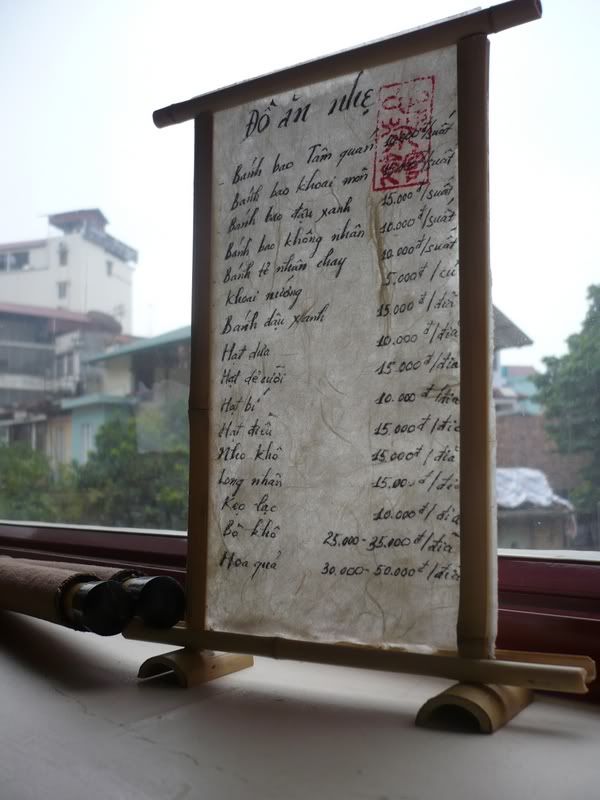 Đồ ăn nhẹ
- Bánh bao Tâm quán đ/suất
- Bánh bao khoai môn đ/suất
- Bánh bao đậu xanh 15.000đ/suất
- Bánh bao không nhân 10.000đ/suất
- Bánh tẻ nhân chay 10.000đ/suất
- Khoai nướng 5.000đ/củ
- Bánh đậu xanh 15.000đ/đĩa
- Hạt dưa 10.000đ/đĩa
- Hạt dẻ cười 15.000đ/đĩa
- Hạt bí 10.000đ/đĩa
- Hạt điều 15.000đ/đĩa
- Nho khô 15.000đ/đĩa
- Long nhãn 15.000đ/đĩa
- Kẹo lạc 10.000đ/đĩa
- Bò khô 25.000-35.000đ/đĩa
- Hoa quả 30.000-50.000đ/đĩa